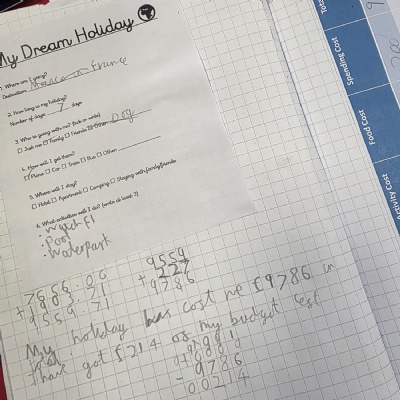 My Dream Holiday
1. Where am I going?
Destination: in France
2. How long is my holiday?
Number of days 7 days
3. Who is going with me? (tick or write)
☐ Just me ☐ Family ☐ Friends ☐ Other Dog
4. How will I get there?
☐ Plane ☐ Car ☐ Train ☐ Bus ☐ Other
5. Where will I stay?
☐ Hotel ☐ Apartment ☐ Camping ☐ Staying with family/friends
6. What activities will I do? (write at least 2)
• Watch F1
• Pool
• Waterpark
9559
+ 227
9786
9559.71
My holiday has cost me £9786 in
I have got £214 of my budget left.
- 9786
00214
Spending Cost
Food Cost
Activity Cost